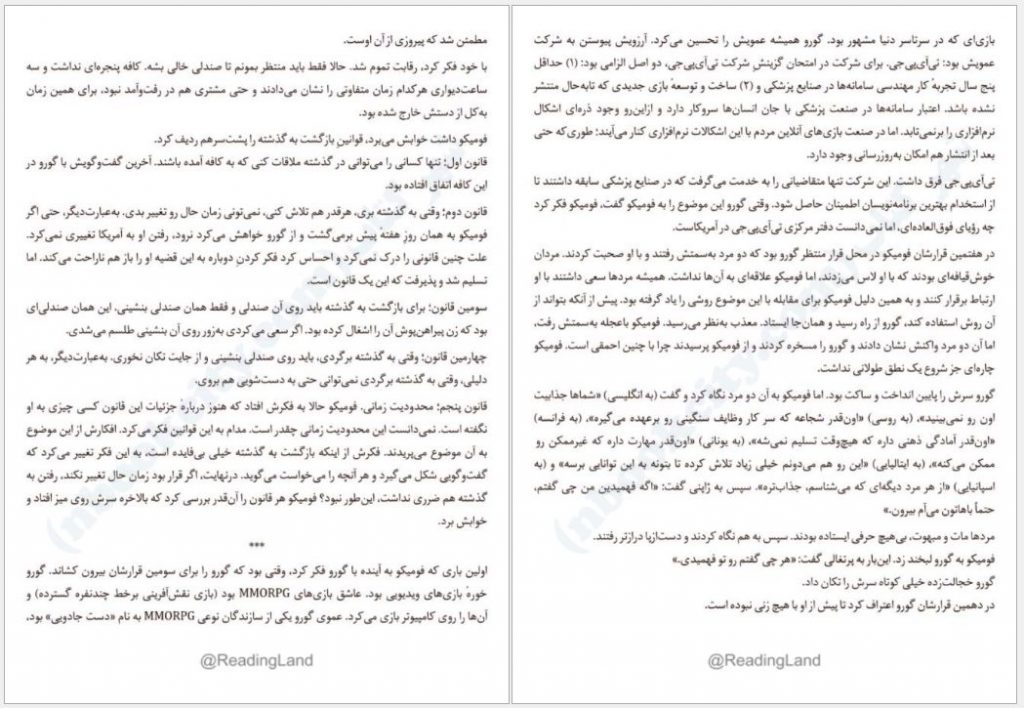 مطمئن شد که پیروزی از آن اوست.
با خود فکر کرد، رقابت تموم شد. حالا فقط باید منتظر بمونم تا صندلی خالی بشه. کافه پنجره‌ای نداشت و سه
ساعت‌دیواری هرکدام زمان متفاوتی را نشان می‌دادند و حتی مشتری هم در رفت‌وآمد نبود، برای همین زمان
به‌کل از دستش خارج شده بود.
فومیکو داشت خوابش می‌برد، قوانین بازگشت به گذشته را پشت‌سرهم ردیف کرد.
قانون اول؛ تنها کسانی را می‌توانی در گذشته ملاقات کنی که به کافه آمده باشند. آخرین گفت‌وگویش با گورو در
این کافه اتفاق افتاده بود.
قانون دوم؛ وقتی به گذشته بری، هرقدر هم تلاش کنی، نمی‌تونی زمان حال رو تغییر بدی. به‌عبارت‌دیگر، حتی اگر
فومیکو به همان روز هفته پیش برمی‌گشت و از گورو خواهش می‌کرد نرود، رفتن او به آمریکا تغییری نمی‌کرد.
علت چنین قانونی را درک نمی‌کرد و احساس کرد فکر کردن دوباره به این قضیه او را باز هم ناراحت می‌کند. اما
تسلیم شد و پذیرفت که این یک قانون است.
سومین قانون؛ برای بازگشت به گذشته باید روی آن صندلی و فقط همان صندلی بنشینی، این همان صندلی‌ای
بود که زن پیراهن‌پوش آن را اشغال کرده بود. اگر سعی می‌کردی به‌زور روی آن بنشینی طلسم می‌شدی.
چهارمین قانون؛ وقتی به گذشته برگردی، باید روی صندلی بنشینی و از جایت تکان نخوری. به‌عبارت‌دیگر، به هر
دلیلی، وقتی به گذشته برگردی نمی‌توانی حتی به دست‌شویی هم بروی.
قانون پنجم؛ محدودیت زمانی. فومیکو حالا به فکرش افتاد که هنوز دربارهٔ جزئیات این قانون کسی چیزی به او
نگفته است. نمی‌دانست این محدودیت زمانی چقدر است. مدام به این قوانین فکر می‌کرد. افکارش از این موضوع
به آن موضوع می‌پریدند. فکرش از اینکه بازگشت به گذشته خیلی بی‌فایده است، به این فکر تغییر می‌کرد که
گفت‌وگویی شکل می‌گیرد و هر آنچه را می‌خواست می‌گوید. درنهایت، اگر قرار بود زمان حال تغییر نکند، رفتن به
گذشته هم ضرری نداشت، این‌طور نبود؟ فومیکو هر قانون را آن‌قدر بررسی کرد که بالاخره سرش روی میز افتاد و
خوابش برد.
***
اولین باری که فومیکو به آینده با گورو فکر کرد، وقتی بود که گورو را برای سومین قرارشان بیرون کشاند. گورو
خورهٔ بازی‌های ویدیویی بود. عاشق بازی‌های MMORPG بود (بازی نقش‌آفرینی برخط چندنفره گسترده) و
آن‌ها را روی کامپیوتر بازی می‌کرد. عموی گورو یکی از سازندگان نوعی MMORPG به نام «دست جادویی» بود،
@ReadingLand
بازی‌ای که در سرتاسر دنیا مشهور بود. گورو همیشه عمویش را تحسین می‌کرد. آرزویش پیوستن به شرکت
عمویش بود: تی‌آی‌پی‌جی. برای شرکت در امتحان گزینش شرکت تی‌آی‌پی‌جی، دو اصل الزامی بود: (۱) حداقل
پنج سال تجربهٔ کار مهندسی سامانه‌ها در صنایع پزشکی و (۲) ساخت و توسعهٔ بازی جدیدی که تابه‌حال منتشر
نشده باشد. اعتبار سامانه‌ها در صنعت پزشکی با جان انسان‌ها سروکار دارد و ازاین‌رو وجود ذره‌ای اشکال
نرم‌افزاری را برنمی‌تابد. اما در صنعت بازی‌های آنلاین مردم با این اشکالات نرم‌افزاری کنار می‌آیند؛ طوری‌که حتی
بعد از انتشار هم امکان به‌روزرسانی وجود دارد.
تی‌آی‌پی‌جی فرق داشت. این شرکت تنها متقاضیانی را به خدمت می‌گرفت که در صنایع پزشکی سابقه داشتند تا
از استخدام بهترین برنامه‌نویسان اطمینان حاصل شود. وقتی گورو این موضوع را به فومیکو گفت، فومیکو فکر کرد
چه رؤیای فوق‌العاده‌ای، اما نمی‌دانست دفتر مرکزی تی‌آی‌پی‌جی در آمریکاست.
در هفتمین قرارشان فومیکو در محل قرار منتظر گورو بود که دو مرد به‌سمتش رفتند و با او صحبت کردند. مردان
خوش‌قیافه‌ای بودند که با او لاس می‌زدند، اما فومیکو علاقه‌ای به آن‌ها نداشت. همیشه مردها سعی داشتند با او
ارتباط برقرار کنند و به همین دلیل فومیکو برای مقابله با این موضوع روشی را یاد گرفته بود. پیش از آنکه بتواند از
آن روش استفاده کند، گورو از راه رسید و همان‌جا ایستاد. معذب به‌نظر می‌رسید. فومیکو باعجله به‌سمتش رفت،
اما آن دو مرد واکنش نشان دادند و گورو را مسخره کردند و از فومیکو پرسیدند چرا با چنین احمقی است. فومیکو
چاره‌ای جز شروع یک نطق طولانی نداشت.
گورو سرش را پایین انداخت و ساکت بود. اما فومیکو به آن دو مرد نگاه کرد و گفت (به انگلیسی) «شماها جذابیت
اون رو نمی‌بینید»، (به روسی) «اون‌قدر شجاعه که سر کار وظایف سنگینی رو برعهده می‌گیره»، (به فرانسه)
«اون‌قدر آمادگی ذهنی داره که هیچ‌وقت تسلیم نمی‌شه»، (به یونانی) «اون‌قدر مهارت داره که غیرممکن رو
ممکن می‌کنه»، (به ایتالیایی) «این رو هم می‌دونم خیلی زیاد تلاش کرده تا بتونه به این توانایی برسه» و (به
اسپانیایی) «از هر مرد دیگه‌ای که می‌شناسم، جذاب‌تره». سپس به ژاپنی گفت: «اگه فهمیدین من چی گفتم،
حتماً باهاتون می‌آم بیرون.»
مردها مات و مبهوت، بی‌هیچ حرفی ایستاده بودند. سپس به هم نگاه کردند و دست‌ازپا درازتر رفتند.
فومیکو به گورو لبخند زد. این‌بار به پرتغالی گفت: «هر چی گفتم رو تو فهمیدی.»
گورو خجالت‌زده خیلی کوتاه سرش را تکان داد.
در دهمین قرارشان گورو اعتراف کرد تا پیش از او با هیچ زنی نبوده است.
@ReadingLand